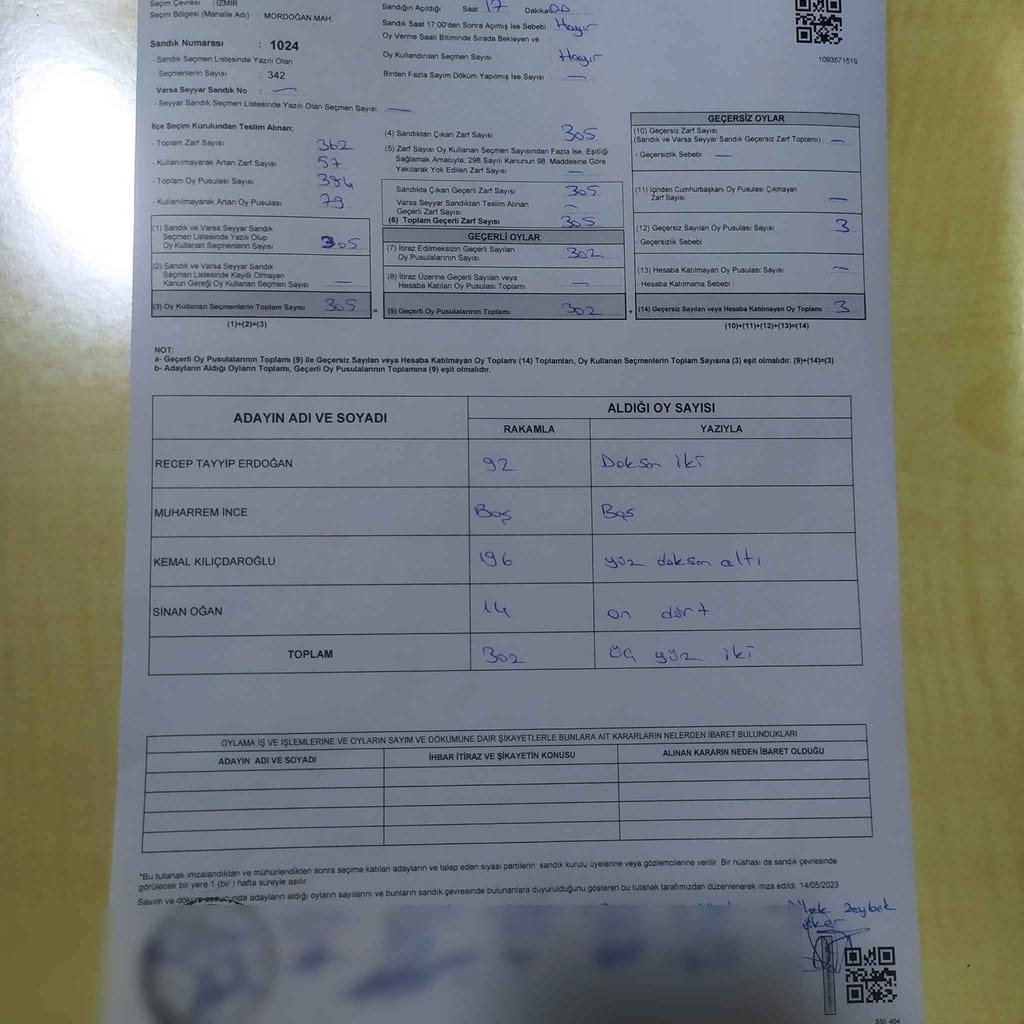 Seçim Çevresi : İZMİR
Seçim Bölgesi (Mahalle Adı) MORDOĞAN MAH.
Sandık Numarası : 1024
- Sandık Seçmen Listesinde Yazılı Olan
Seçmenlerin Sayısı : 342
Varsa Seyyar Sandık No : —
- Seyyar Sandık Seçmen Listesinde Yazılı Olan Seçmen Sayısı —
Sandığın Açıldığı Saat 17 Dakika 00
Sandık Saat 17:00'den Sonra Açılmış İse Sebebi Hayır
Oy Verme Saati Bitiminde Sırada Bekleyen ve
Oy Kullandırılan Seçmen Sayısı Hayır
Birden Fazla Sayım Döküm Yapılmış İse Sayısı —
1093571519
İlçe Seçim Kurulundan Teslim Alınan;
- Toplam Zarf Sayısı 362
- Kullanılmayarak Artan Zarf Sayısı 57
- Toplam Oy Pusulası Sayısı 384
- Kullanılmayarak Artan Oy Pusulası 79
(1) Sandık ve Varsa Seyyar Sandık
Seçmen Listesinde Yazılı Olup
Oy Kullanan Seçmenlerin Sayısı 305
(2) Sandık ve Varsa Seyyar Sandık
Seçmen Listesinde Kayıtlı Olmayan
Kanun Gereği Oy Kullanan Seçmen Sayısı —
(3) Oy Kullanan Seçmenlerin Toplam Sayısı 305
(1)+(2)=(3)
(4) Sandıktan Çıkan Zarf Sayısı 305
(5) Zarf Sayısı Oy Kullanan Seçmen Sayısından Fazla İse, Eşitliği
Sağlamak Amacıyla, 298 Sayılı Kanunun 98. Maddesine Göre
Yakılarak Yok Edilen Zarf Sayısı —
Sandıkta Çıkan Geçerli Zarf Sayısı 305
Varsa Seyyar Sandıktan Teslim Alınan
Geçerli Zarf Sayısı —
(6) Toplam Geçerli Zarf Sayısı 305
GEÇERLİ OYLAR
(7) İtiraz Edilmeksizin Geçerli Sayılan
Oy Pusulalarının Sayısı 302
(8) İtiraz Üzerine Geçerli Sayılan veya
Hesaba Katılan Oy Pusulası Toplamı —
= (9) Geçerli Oy Pusulalarının Toplamı 302
GEÇERSİZ OYLAR
(10) Geçersiz Zarf Sayısı
(Sandık ve Varsa Seyyar Sandık Geçersiz Zarf Toplamı) —
- Geçersizlik Sebebi —
(11) İçinden Cumhurbaşkanı Oy Pusulası Çıkmayan
Zarf Sayısı —
(12) Geçersiz Sayılan Oy Pusulası Sayısı 3
- Geçersizlik Sebebi
(13) Hesaba Katılmayan Oy Pusulası Sayısı —
- Hesaba Katılmama Sebebi :
+ (14) Geçersiz Sayılan veya Hesaba Katılmayan Oy Toplamı 3
(10)+(11)+(12)+(13)=(14)
NOT:
a- Geçerli Oy Pusulalarının Toplamı (9) ile Geçersiz Sayılan veya Hesaba Katılmayan Oy Toplamı (14) Toplamları, Oy Kullanan Seçmenlerin Toplam Sayısına (3) eşit olmalıdır. (9)+(14)=(3)
b- Adayların Aldığı Oyların Toplamı, Geçerli Oy Pusulalarının Toplamına (9) eşit olmalıdır.
ADAYIN ADI VE SOYADI
ALDIĞI OY SAYISI
RAKAMLA YAZIYLA
RECEP TAYYİP ERDOĞAN 92 Doksan iki
MUHARREM İNCE Boş Boş
KEMAL KILIÇDAROĞLU 196 yüz doksan altı
SİNAN OĞAN 14 on dört
TOPLAM 302 üç yüz iki
OYLAMA İŞ VE İŞLEMLERİNE VE OYLARIN SAYIM VE DÖKÜMÜNE DAİR ŞİKAYETLERLE BUNLARA AİT KARARLARIN NELERDEN İBARET BULUNDUKLARI
ADAYIN ADI VE SOYADI İHBAR İTİRAZ VE ŞİKAYETİN KONUSU ALINAN KARARIN NEDEN İBARET OLDUĞU
"Bu tutanak imzalandıktan ve mühürlendikten sonra seçime katılan adayların ve talep eden siyasi partilerin sandık kurulu üyelerine veya gözlemcilerine verilir. Bir nüshası da sandık çevresinde
görülecek bir yere 1 (bir) hafta süreyle asılır.
Sayım ve döküm sonucunda adayların aldığı oyların sayılarını ve bunların sandık çevresinde bulunanlara duyurulduğunu gösteren bu tutanak tarafımızdan düzenlenerek imza edildi. 14/05/2023
Zeybek